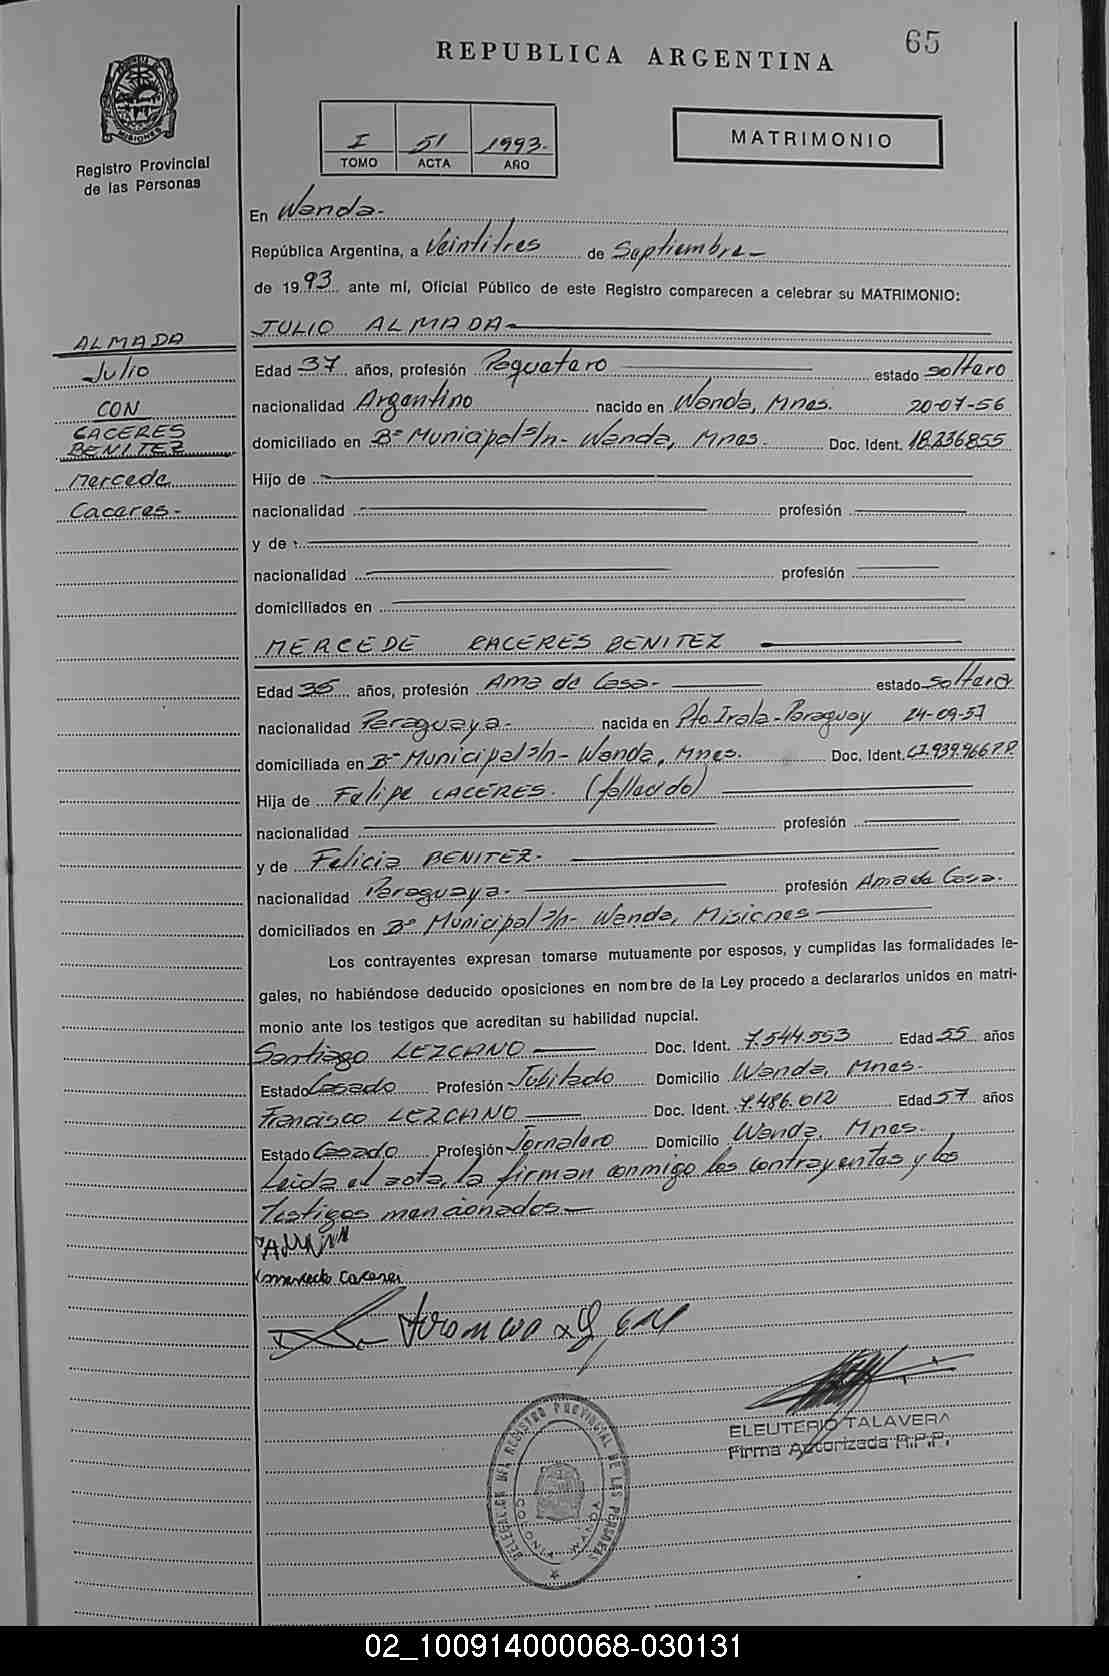 65
REPUBLICA ARGENTINA
PROVINCIA DE MISIONES
Registro Provincial
de las Personas
I 51 1993.
TOMO ACTA AÑO
MATRIMONIO
En Wanda.-
República Argentina, a Veintitres de Septiembre-
de 1993 ante mí, Oficial Público de este Registro comparecen a celebrar su MATRIMONIO:
ALMADA
Julio
CON
CACERES
BENITEZ
Mercede
Caceres.-
JULIO ALMADA
Edad 37 años, profesión estado soltero
nacionalidad Argentino nacido en Wanda, Mnes. 20-07-56
domiciliado en Bº Municipal s/n- Wanda, Mnes. Doc. Ident. 18.236855
Hijo de
nacionalidad profesión
y de
nacionalidad profesión
domiciliados en
MERCEDE CACERES BENITEZ
Edad 35 años, profesión Ama de Casa- estado soltera
nacionalidad Paraguaya- nacida en Pto. Irala-Paraguay 24-09-57
domiciliada en Bº Municipal s/n- Wanda, Mnes. Doc. Ident.
Hija de Felipe CACERES. (fallecido)
nacionalidad profesión
y de Felicia BENITEZ.
nacionalidad Paraguaya- profesión Ama de Casa.
domiciliados en Bº Municipal s/n- Wanda, Misiones
Los contrayentes expresan tomarse mutuamente por esposos, y cumplidas las formalidades le-
gales, no habiéndose deducido oposiciones en nombre de la Ley procedo a declararlos unidos en matri-
monio ante los testigos que acreditan su habilidad nupcial.
Santiago LEZCANO Doc. Ident. 7.544.553 Edad 55 años
Estado Casado Profesión Jubilado Domicilio Wanda, Mnes.
Francisco LEZCANO Doc. Ident. 7.486.612 Edad 57 años
Estado Casado Profesión Jornalero Domicilio Wanda, Mnes.
Leida el acta, la firman conmigo los contrayentes y los
testigos mencionados-
mercede caceres
DELEGACION DEL REGISTRO PROVINCIAL DE LAS PERSONAS
WANDA
ELEUTERIO TALAVERA
Firma Autorizada R.P.P.
02_100914000068-030131